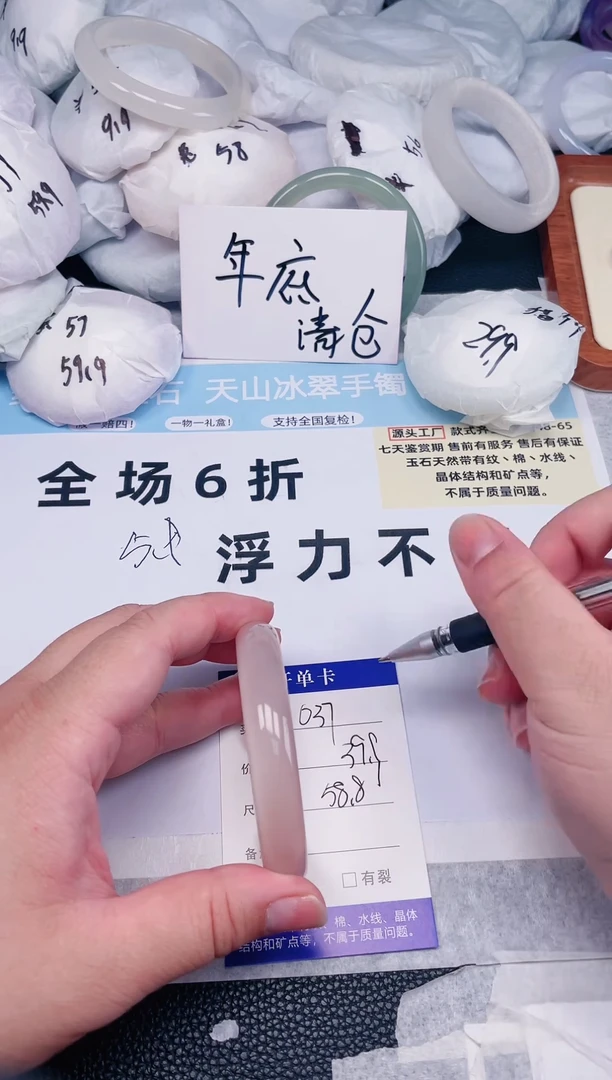 9.9
9.9
58
56
59.9
年底
清仓
57
59.9
29.9
石 天山冰翠手镯
一物一礼盒!
支持全国复检!
源头工厂 款式齐
-65
七天鉴赏期 售前有服务 售后有保证
玉石天然带有纹、棉、水线、
晶体结构和矿点等,
不属于质量问题。
全场6折
浮力不
单卡
037
39.9
58.8
备
□有裂
棉、水线、晶体
结构和矿点等,不属于质量问题。